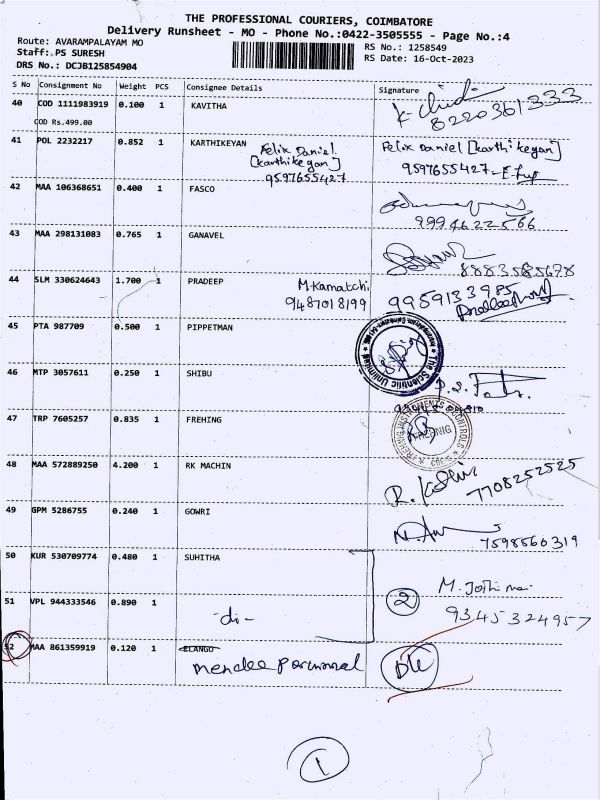 THE PROFESSIONAL COURIERS, COIMBATORE
Delivery Runsheet - MO - Phone No.:0422-3505555 - Page No.:4
Route: AVARAMPALAYAM MO
RS No.: 1258549
Staff: PS SURESH
RS Date: 16-Oct-2023
DRS No.: DCJB125854904
S No Consignment No Weight PCS Consignee Details Signature
40 COD 1111983919 0.100 1 KAVITHA
8220361333
COD Rs.499.00
41 POL 2232217 0.852 1 KARTHIKEYAN Felix Daniel [karthikeyan] 9597655427 Felix Daniel [karthikeyan]
9597655427
42 MAA 106368651 0.400 1 FASCO
9994622566
43 MAA 298131083 0.765 1 GANAVEL
8883585678
44 SLM 330624643 1.700 1 PRADEEP M.Kamatchi 9487018199 9959133985
45 PTA 987709 0.500 1 PIPPETMAN
46 MTP 3057611 0.250 1 SHIBU
47 TRP 7605257 0.835 1 FREHING
48 MAA 572889250 4.200 1 RK MACHIN
7708252525
49 GPM 5286755 0.240 1 GOWRI
7598560319
50 KUR 530709774 0.480 1 SUHITHA
51 VPL 944333546 0.890 1 -di- 2 M. Jothi
9345324957
52 MAA 861359919 0.120 1 ELANGO
1